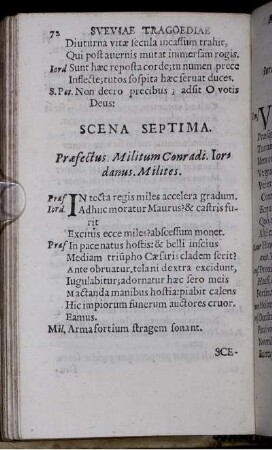 72 SVEVIAE TRAGOEDIAE
Diuturna vitæ secula incassum trahit,
Qui post auernis mutat inmersam rogis.
Iord Sunt hæc reposta corde; tu numen prece
Inflecte; tutos sospita hæc seruat duces.
S.Par. Non deero precibus; adsit O votis
Deus:
SCENA SEPTIMA.
Præfectus Militum Conradi. Ior-
danus. Milites.
Præf IN tecta regis miles accelera gradum.
Iord. Adhuc moratur Maurus? & castris fu-
rit
Excinis ecce miles? abscessum monet.
Præf In pace natus hostis: & belli inscius
Mediam triũpho Cæsaris cladem serit?
Ante obruatur, telani dextra excidunt,
Iugulabitur; adornatur hæc sero meis
Mactanda manibus hostia: piabit calens
Hic impiorum funerum auctores cruor.
Eamus.
Mil. Arma fortium stragem sonant.
SCE-